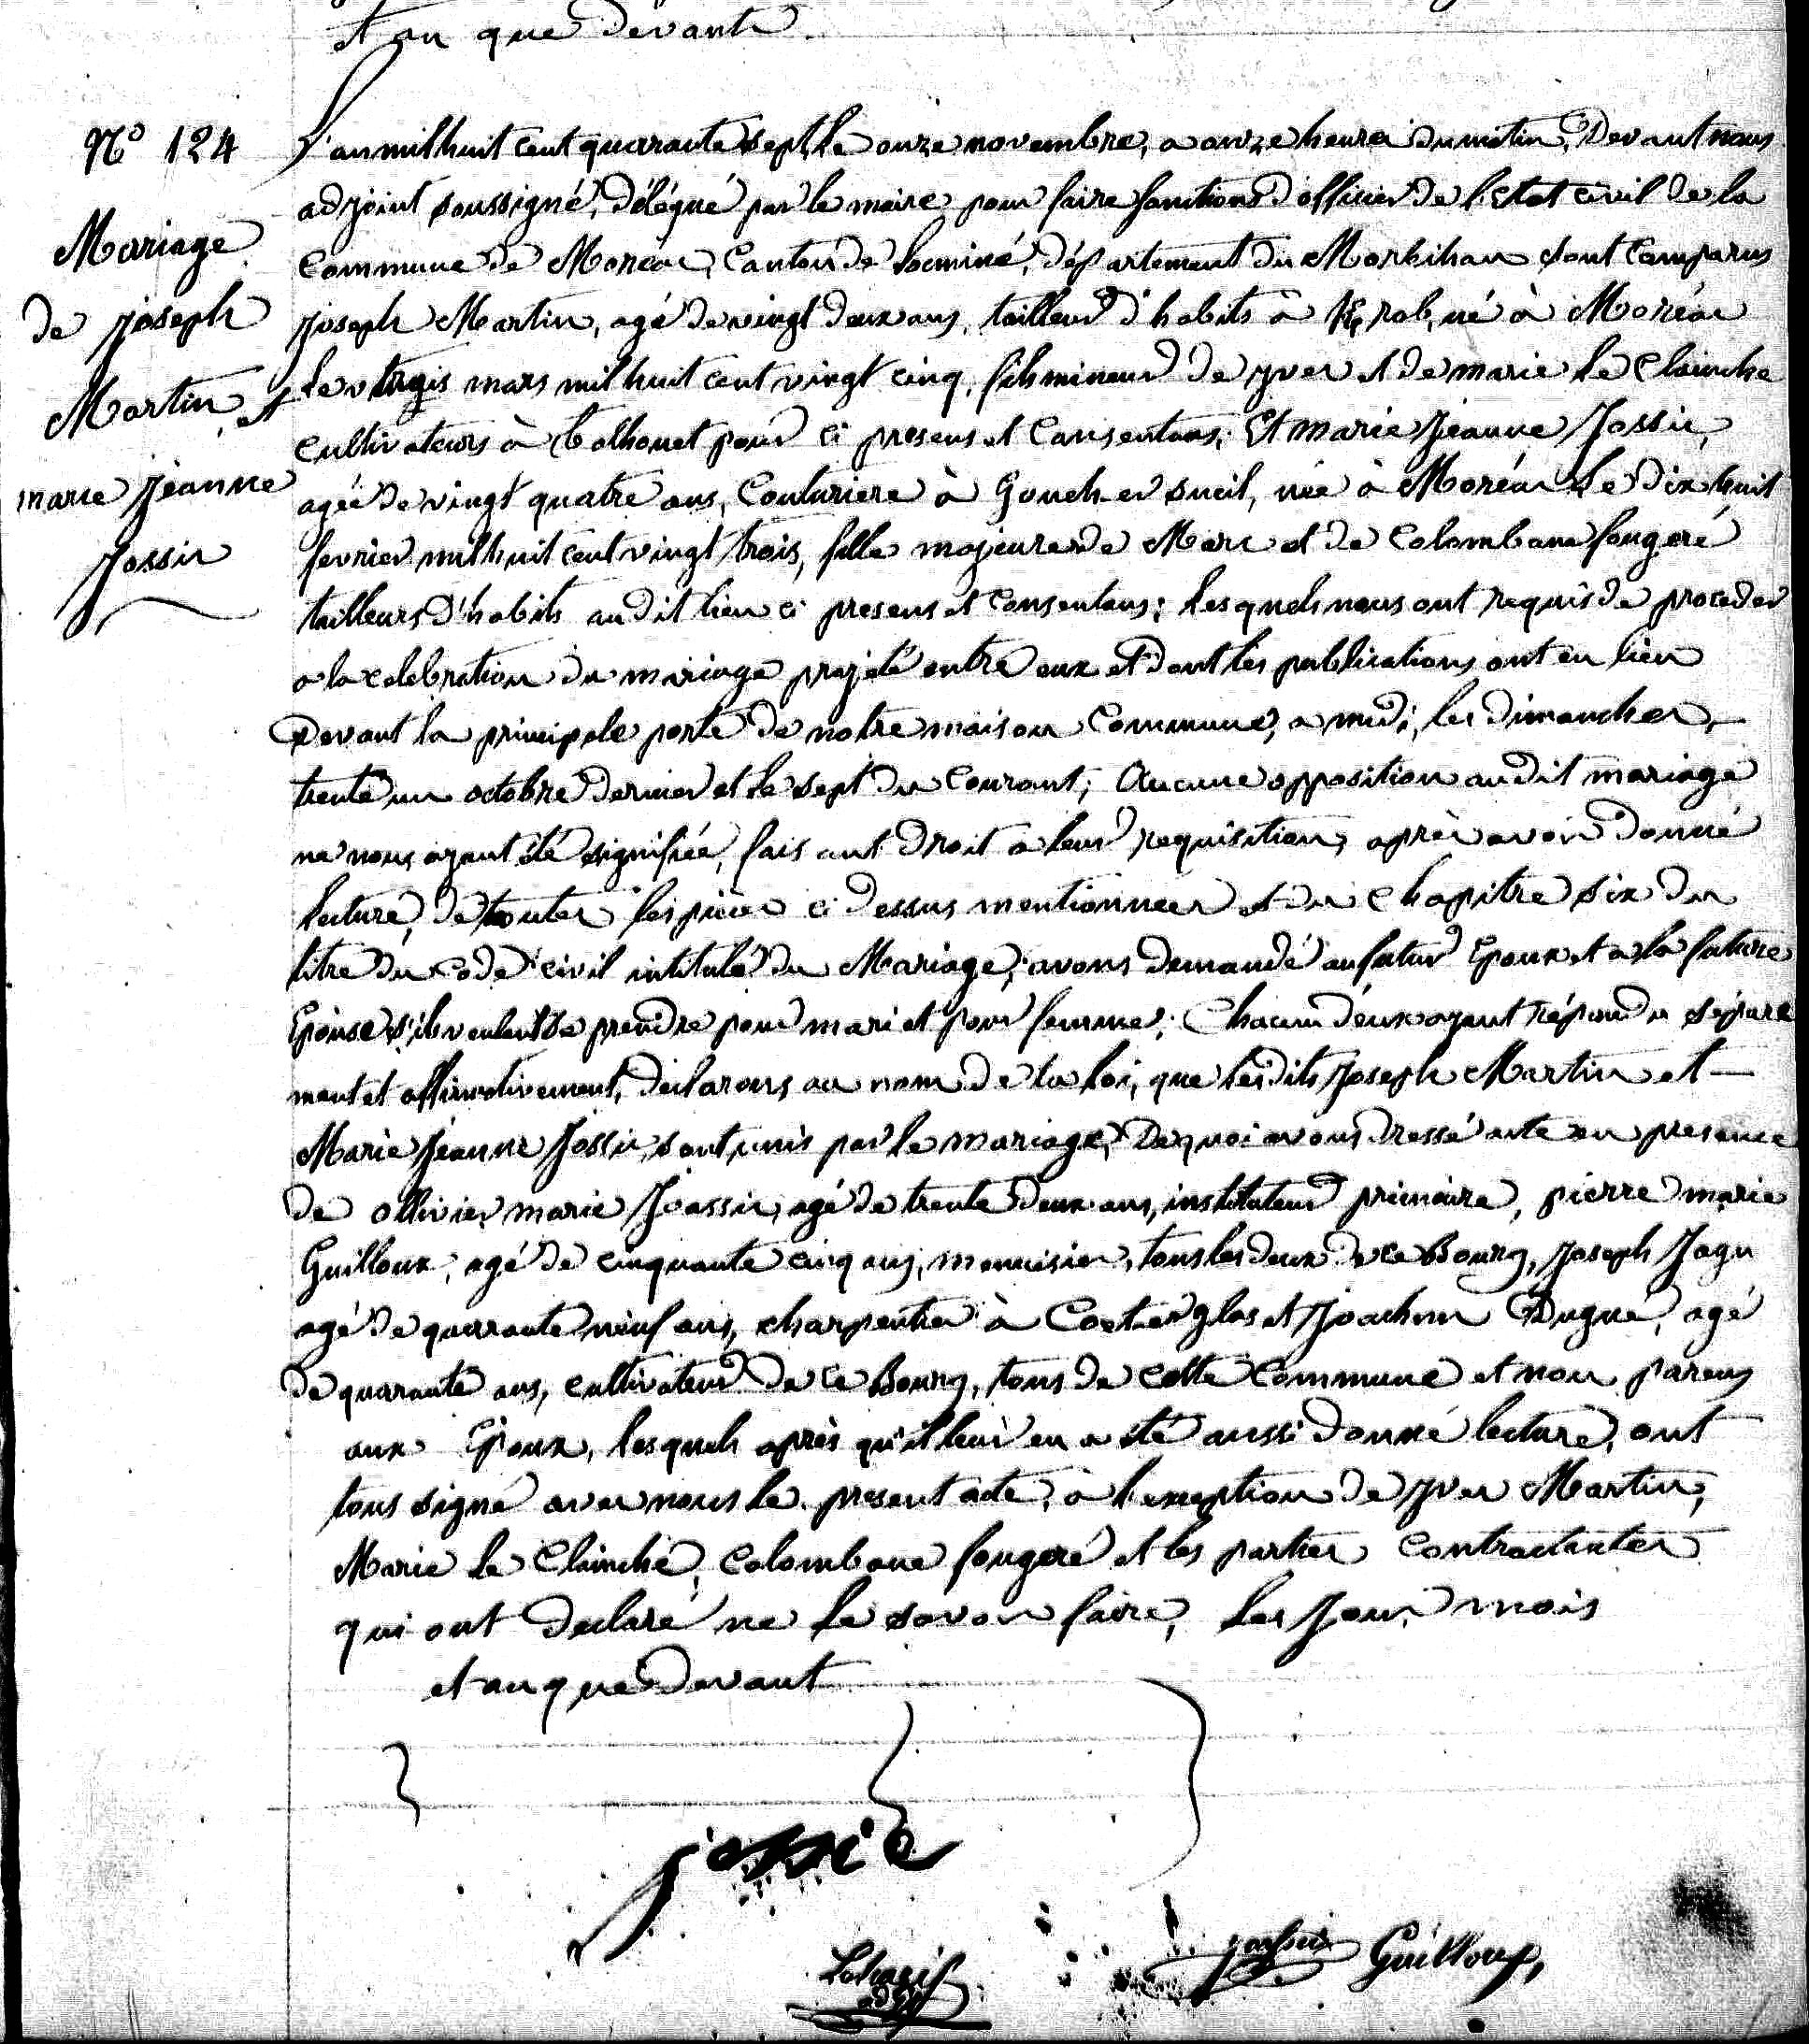 et an que devant.
N° 124
Mariage
de joseph
Martin et
marie Jeanne
Jossic
L'an mil huit cent quarante sept, le onze novembre, a onze heures du matin, Devant nous
adjoint soussigné, délégué par le maire pour faire fonctions d'officier de l'Etat civil de la
Commune de Moréac, Canton de Locminé, département du Morbihan sont Comparus
joseph Martin, agé de vingt deux ans, tailleur d'habits à né à Moréac
le trois mars mil huit cent vingt cinq, fils mineur de yves et de marie Le Clainche
cultivateurs à ci presens et Consentans; Et Marie Jeanne Jossic,
agée de vingt quatre ans, Couturiere à née à Moréac le dix huit
fevrier mil huit cent vingt trois, fille majeure de Marc et de Colombane fougeré
tailleurs d'habits audit lieu ci presens et Consentans; lesquels nous ont requis de proceder
a la celebration du mariage projeté entre eux et dont les publications ont eu lieu
Devant la principale porte de notre maison Commune, a midi, les dimanches
trente un octobre dernier et le sept du Courant; Aucune opposition audit mariage
ne nous ayant été signifiée, faisant droit a leur requisition, après avoir donné
lecture, de toutes les pièces ci dessus mentionnees et du Chapitre six du
titre du Code civil intitulé du Mariage, avons demandé au futur Epoux et a la future
Epouse s'ils veulent se prendre pour mari et pour femme; Chacun d'eux ayant répondu séparé
ment et affirmativement, declarons au nom de la loi, que lesdits Joseph Martin et
Marie Jeanne Jossic, sont unis par le mariage, De quoi avons dressé acte en presence
de ollivier marie Joassic, agé de trente deux ans, instituteur primaire, pierre marie
Guilloux, agé de cinquante cinq ans, menuisier, tous les deux de ce Bourg, Joseph Jagu
agé de quarante neuf ans, charpentier à Coet er glas et Joachim Dugué, agé
de quarante ans, cultivateur de ce Bourg, tous de cette Commune et non parens
aux Epoux, lesquels après qu'il leur en a été aussi donné lecture, ont
tous signé avec nous le present acte, à l'exception de yves Martin,
Marie Le Clainche, Colombane fougeré et les parties Contractantes
qui ont declaré ne le savoir faire, les jour, mois
et an que devant
jossic
Joassic Guilloux,